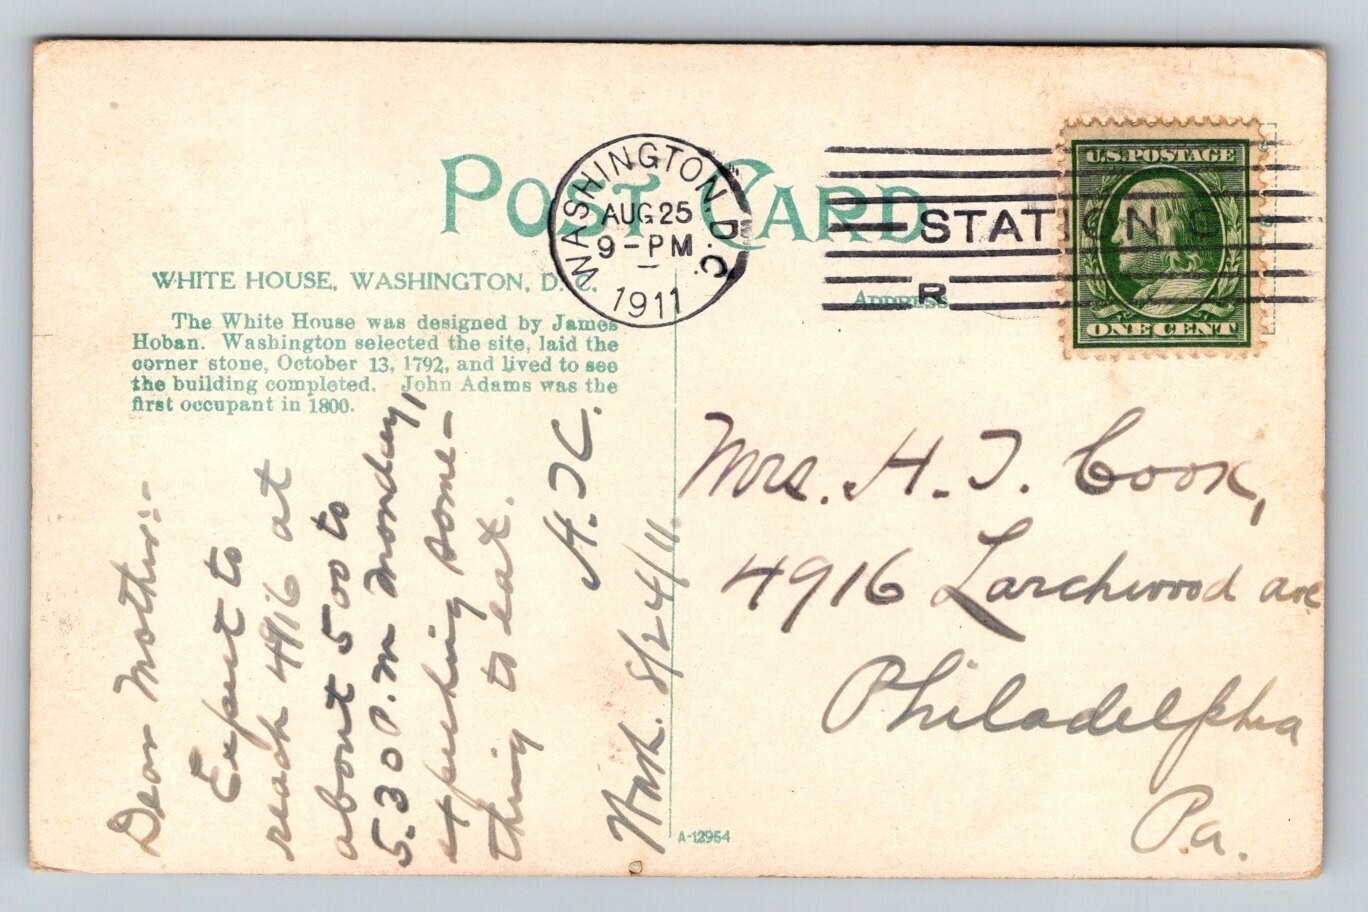 POST CARD
WASHINGTON, D.C.
AUG 25
9-PM
1911
STATION C
R
U.S. POSTAGE
ONE CENT
ADDRESS
WHITE HOUSE, WASHINGTON, D. C.
The White House was designed by James
Hoban. Washington selected the site, laid the
corner stone, October 13, 1792, and lived to see
the building completed. John Adams was the
first occupant in 1800.
Dear Mother:-
Expect to
reach 4916 at
about 5.00 to
5.30 P.M Monday,
expecting some-
thing to eat.
H.T.C.
Wash. 8/24/11.
Mrs. H. T. Cook,
4916 Larchwood ave
Philadelphia
Pa.
A-12954